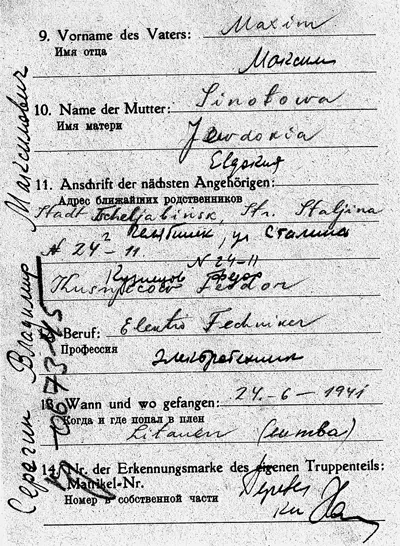 9. Vorname des Vaters: Maxim
Имя отца
Максим
10. Name der Mutter: Sinotowa
Имя матери
Jewdokia
Евдокия
11. Anschrift der nächsten Angehörigen:
Адрес ближайших родственников
Stadt Tscheljabinsk, Str. Staljina
Челябинск, ул Сталина
N 24-11
N 24-11
Кузнецов Федор
Kusnjecow Feodor
Beruf: Elektro Techniker
Профессия
Электротехник
13. Wann und wo gefangen: 24.-6-1941
Когда и где попал в плен
Litauen (Литва)
14. Nr. der Erkennungsmarke des eigenen Truppenteils:
Matrikel-Nr.
Номер в собственной части
Серегин Владимир Максимович